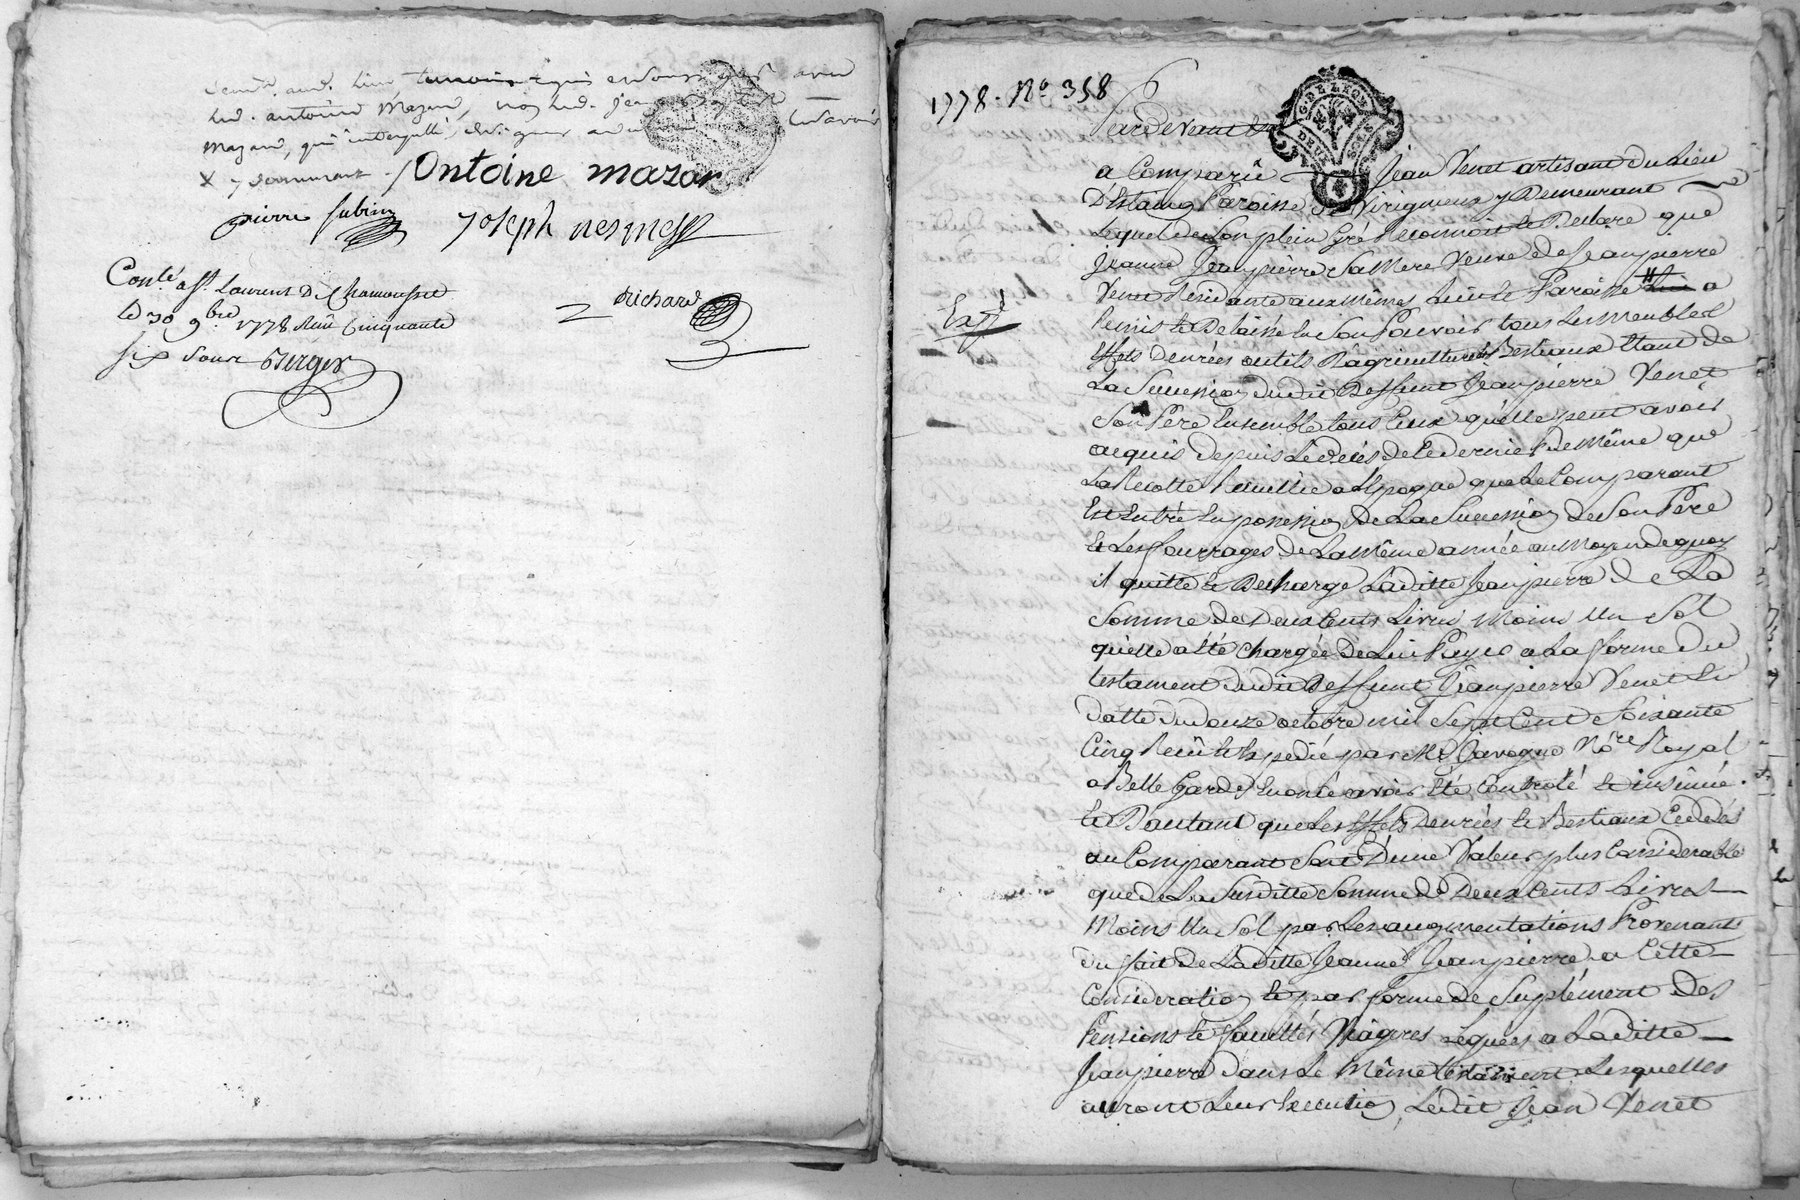 Led. antoine Mazard, non led. jean
Mazard, qui
Antoine mazar
pierre
Joseph nesmes
Con.lé a S.t Laurent De Chamousset
Le 30 9.bre 1778 Reçu Cinquante
six sous Berger
Richard
1778. N.o 358
Pardevant
G. DE LYON
DEUX SOLS
a Comparû Jean Venet artisant du Lieu
D'Estaing Paroisse de Virigneux y Demeurant
Lequel de son plein Gré Reconnoit et Declare que
Jeanne Jeanpierre sa Mere Veuve de Jeanpierre
Venet Residante aux Mêmes Lieu et Paroisse a
Remis et Delaissé en son Pouvoir tous les Meubles
Expé
Effets Denrées outils D'agriculture et Bestiaux Etant de
La Succession dudit Deffunt Jeanpierre Venet
Son Pere Ensemble tous Ceux qu'elle peut avoir
acquis depuis Le deces de Ce dernier de Même que
La Recolte Cueillie a L'Epoque que Le Comparant
Est Entré En possession De La Succession de Son Pere
Et Les fourrages de La Même année au Moyen de quoy
il quitte et Decharge Laditte Jeanpierre de La
Somme de Deux Cents Livres Moins Un Sol
qu'elle a Eté Chargée De Lui Payer a La forme du
testament dudit Deffunt Jeanpierre Venet En
datte du douze octobre mil Sept Cent Soixante
Cinq Reçu et Expedié par M.e Javogue No.re Royal
a Belle Garde Enoncé avoir Eté Controlé et insinué.
Et D'autant que Les Effets Denrées et Bestiaux Cedés
au Comparant Sont D'une Valeur plus Considerable
que de La Susditte Somme de Deux Cents Livres
Moins Un Sol par Les augmentations Provenants
du fait de Laditte Jeanne Jeanpierre a Cette
Consideration Et par forme de Suplément des
Pensions et facultés Viagéres Leguées a Laditte
Jeanpierre dans Le Même testament Lesquelles
auront Leur Execution Ledit Jean Venet